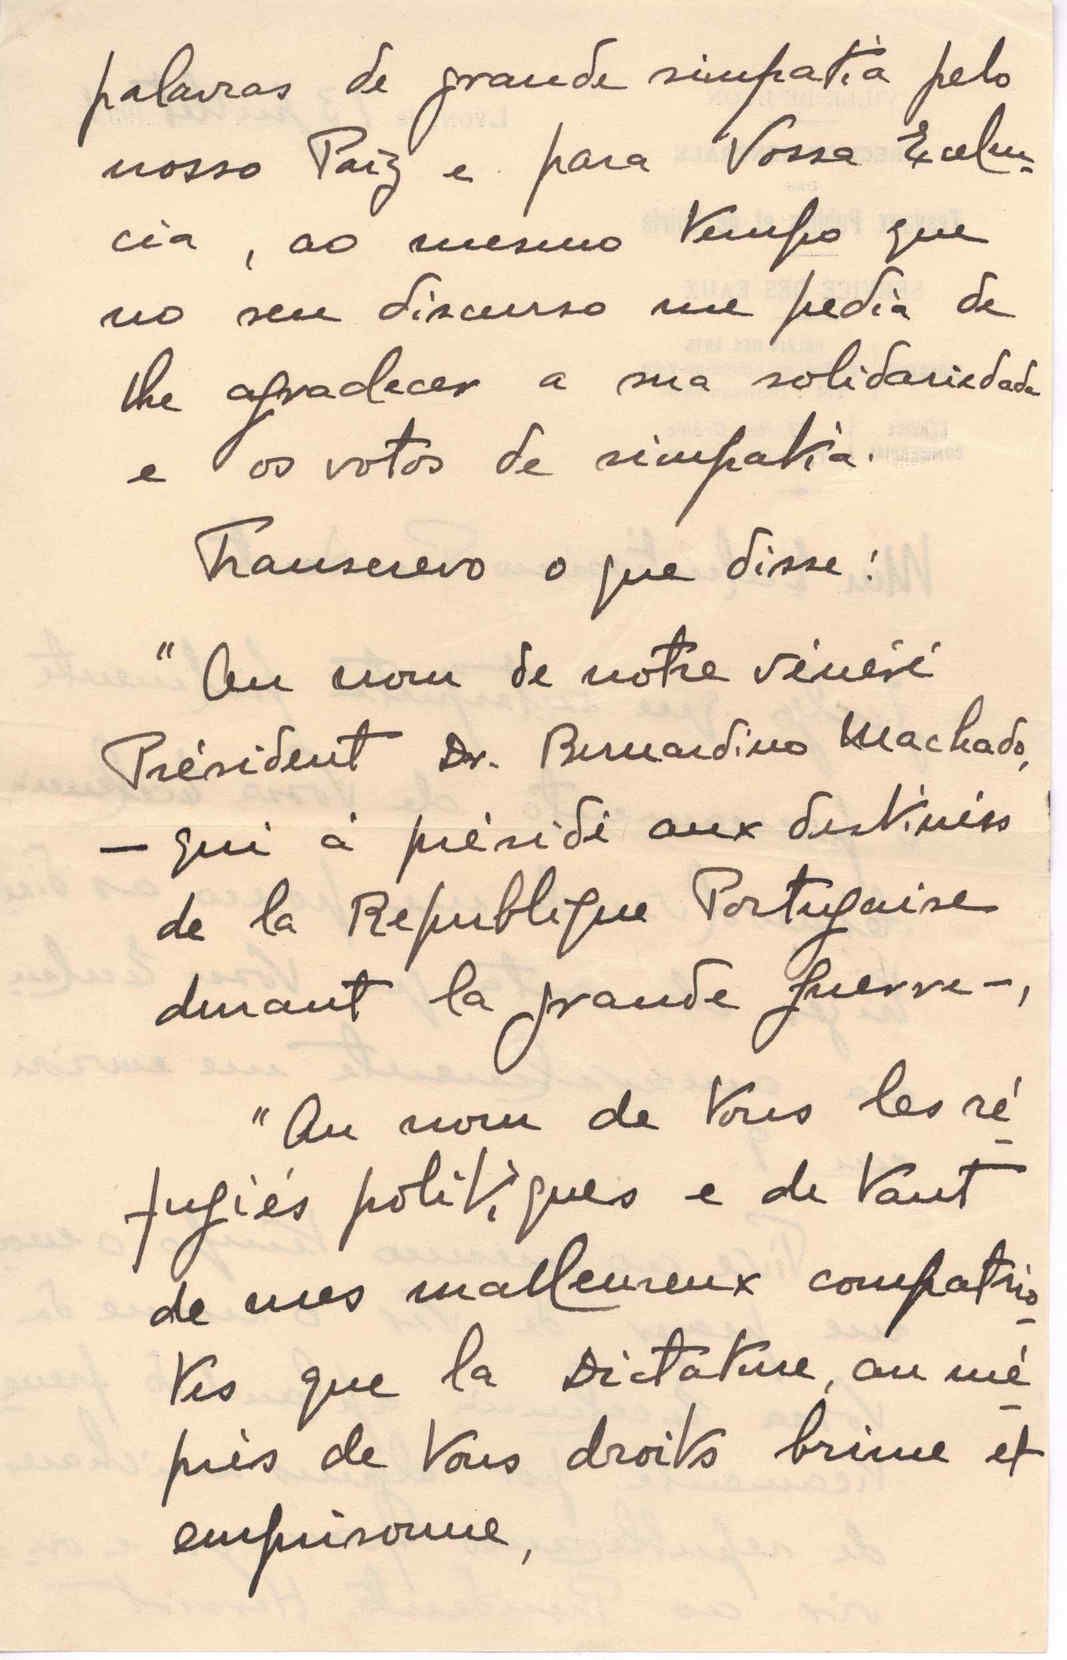 palavras de grande simpatia pelo
nosso Paiz e para Vossa Excelen-
cia, ao mesmo tempo que
no seu discurso me pedia de
lhe agradecer a sua solidariedade
e os votos de simpatia.
Transcrevo o que disse:
"Au nom de notre vénéré
Président Dr. Bernardino Machado,
— qui à présidé aux destinées
de la Republique Portugaise
durant la grande guerre —,
"Au nom de tous les ré-
fugiés politiques e de tant
de mes malheureux compatrio-
tes que la Dictature, au mé-
pris de tous droits brime et
emprisonne,